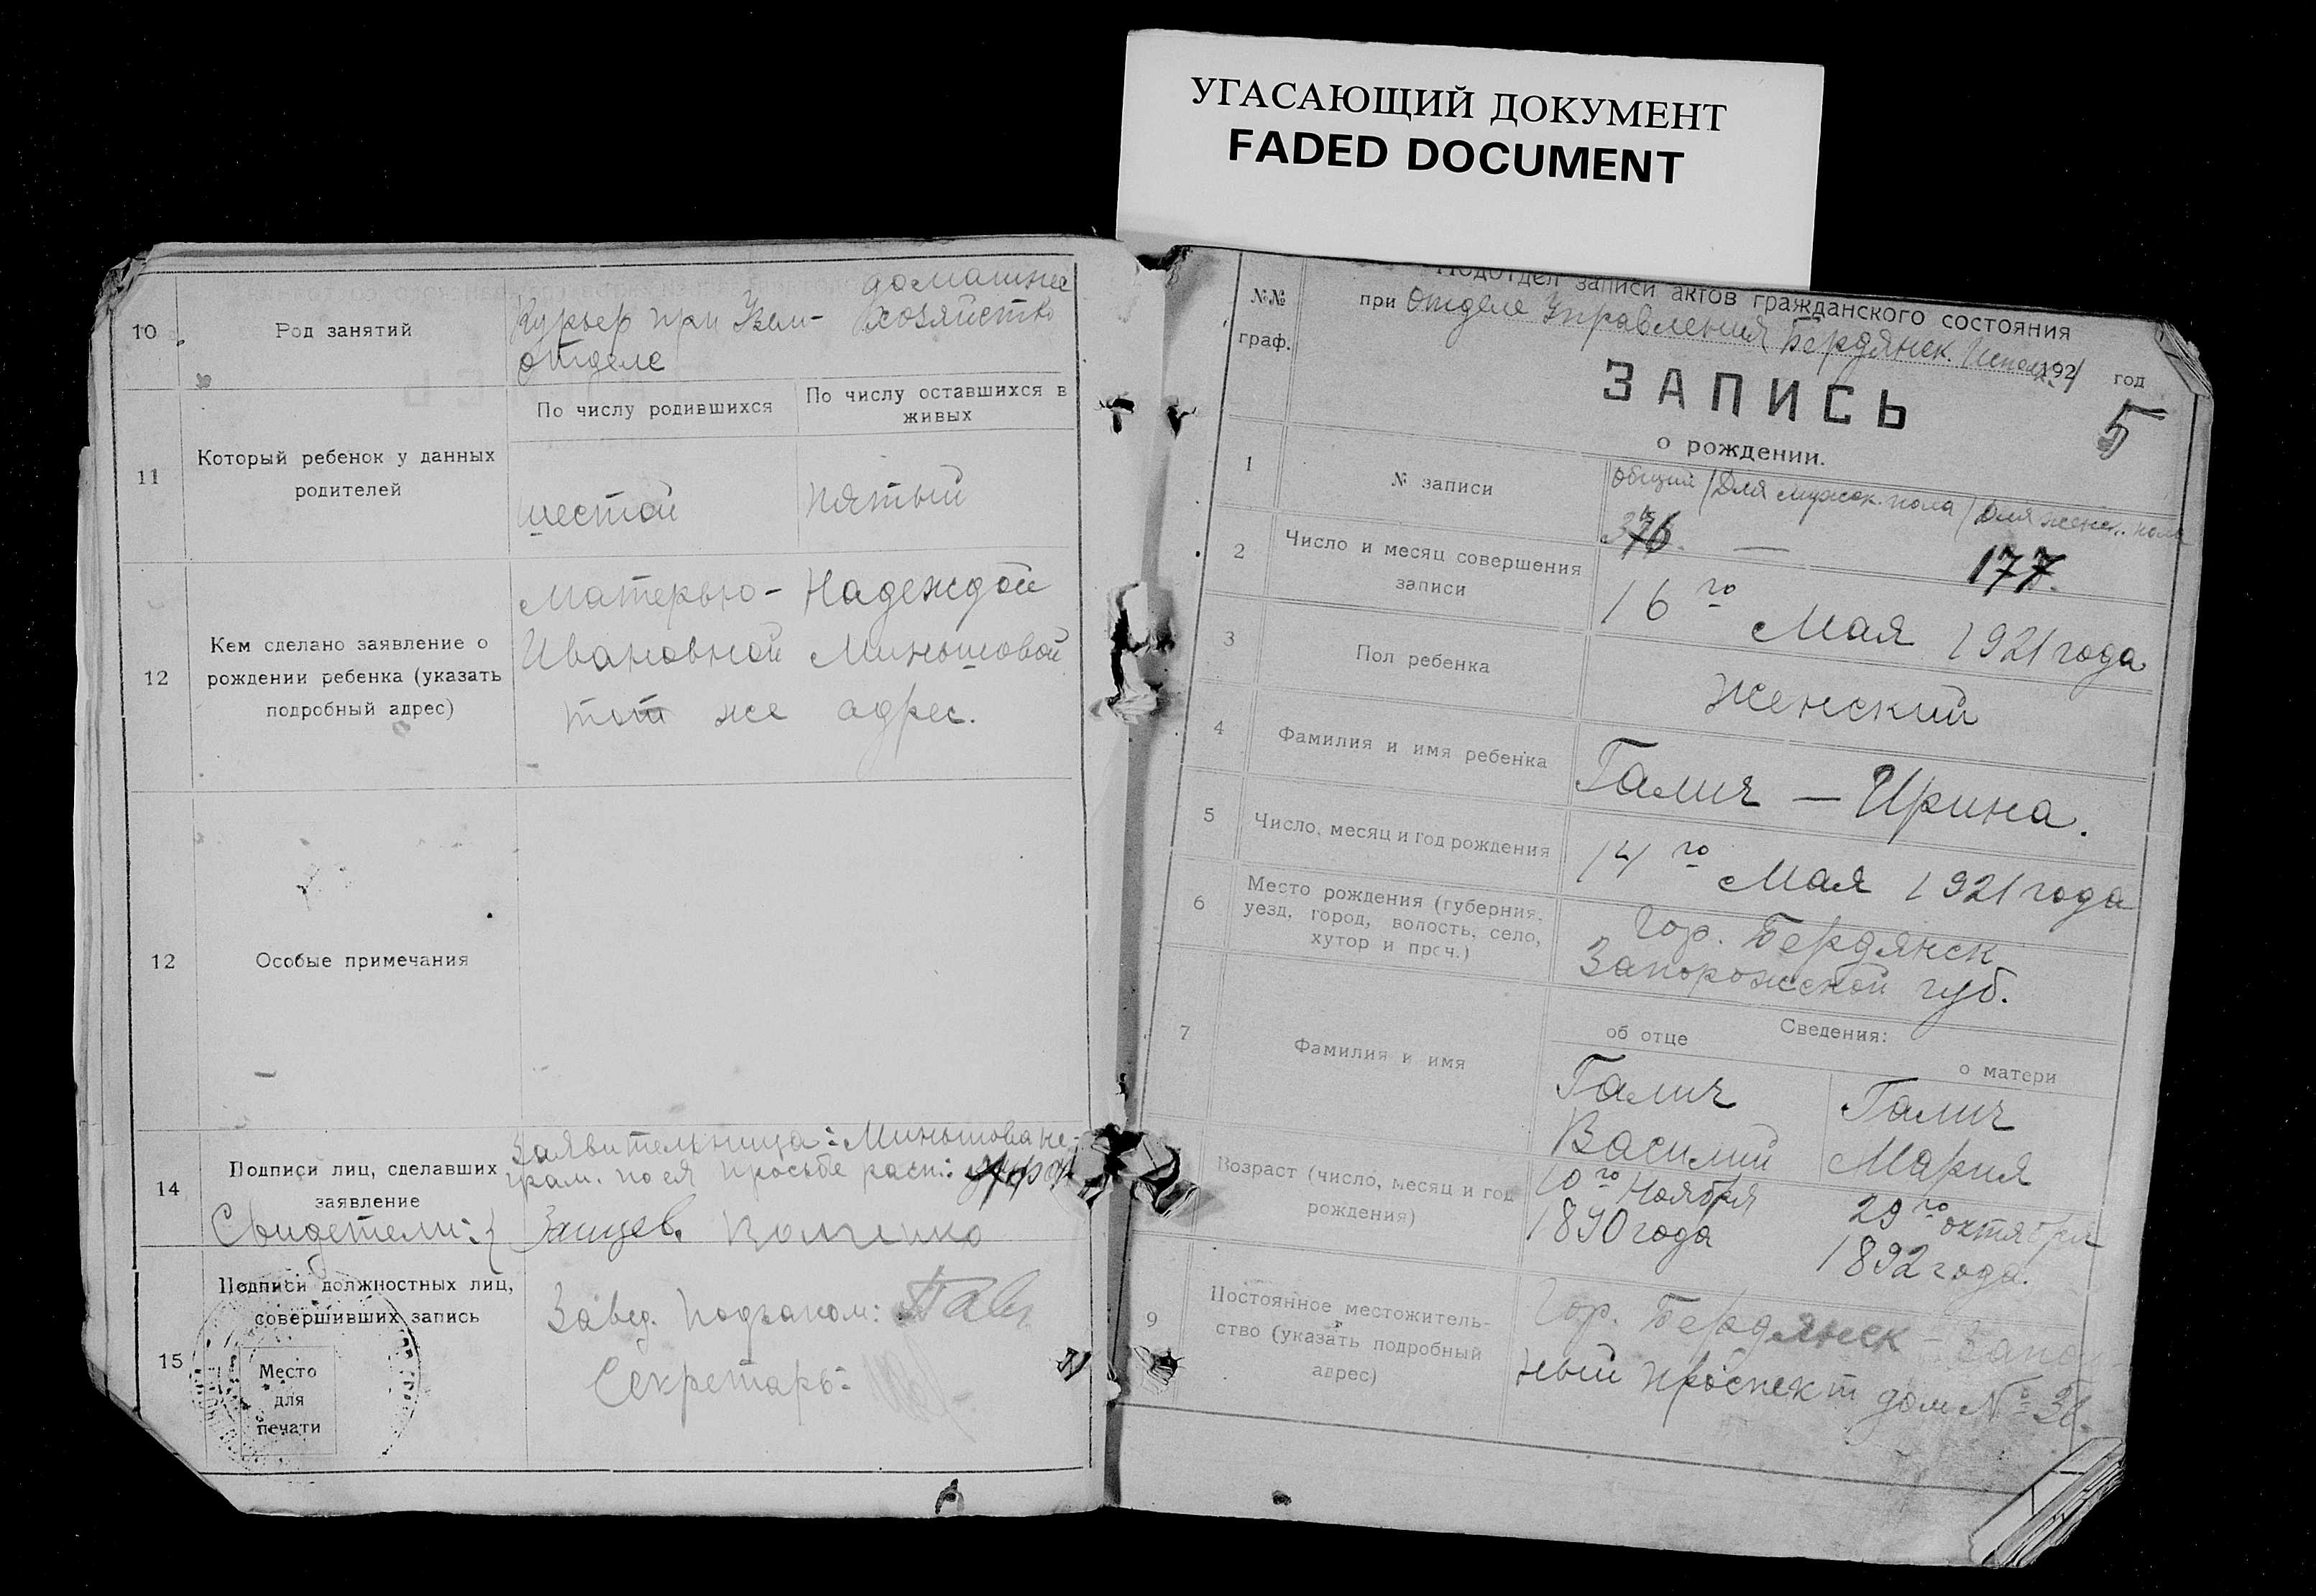 УГАСАЮЩИЙ ДОКУМЕНТ
FADED DOCUMENT
10
Род занятий
Курьер при Зем-
отделе
домашнее
хозяйство
11
Который ребенок у данных
родителей
По числу родившихся
По числу оставшихся в
живых
шестой
пятый
12
Кем сделано заявление о
рождении ребенка (указать
подробный адрес)
Матерью - Надеждой
Ивановной Миньшовой
тот же адрес.
12
Особые примечания
14
Подписи лиц, сделавших
заявление
Заявительница: Миньшова не-
грам. по ея просьбе расп.:
Свидетели:
Зайцев.
15
Подписи должностных лиц,
совершивших запись
Место
для
печати
Завед. Подзагом:
Секретарь:
№№
граф.
Подотдел записи актов гражданского состояния
при Отделе Управления Бердянск. Исполк. 1921 год
ЗАПИСЬ
о рождении.
5
1
№ записи
Общий / Для мужск. пола / Для женск. пола
—
177.
2
Число и месяц совершения
записи
16го Мая 1921 года
3
Пол ребенка
Женский
4
Фамилия и имя ребенка
Галич — Ирина.
5
Число, месяц и год рождения
14го Мая 1921 года
6
Место рождения (губерния,
уезд, город, волость, село,
хутор и проч.)
Гор. Бердянск
Запорожской губ.
7
Фамилия и имя
Сведения:
об отце
о матери
Галич
Василий
Галич
Мария
Возраст (число, месяц и год
рождения)
10го Ноября
1890 года
29го октября
1892 года.
9
Постоянное местожитель-
ство (указать подробный
адрес)
Гор. Бердянск -
ный проспект дом №